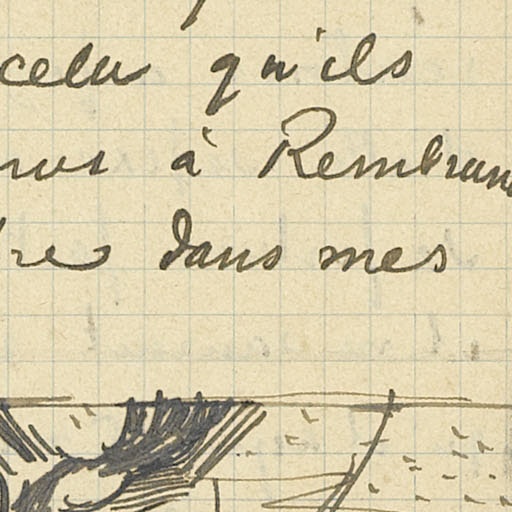 celui qu'ils
à Rembran
dans mes